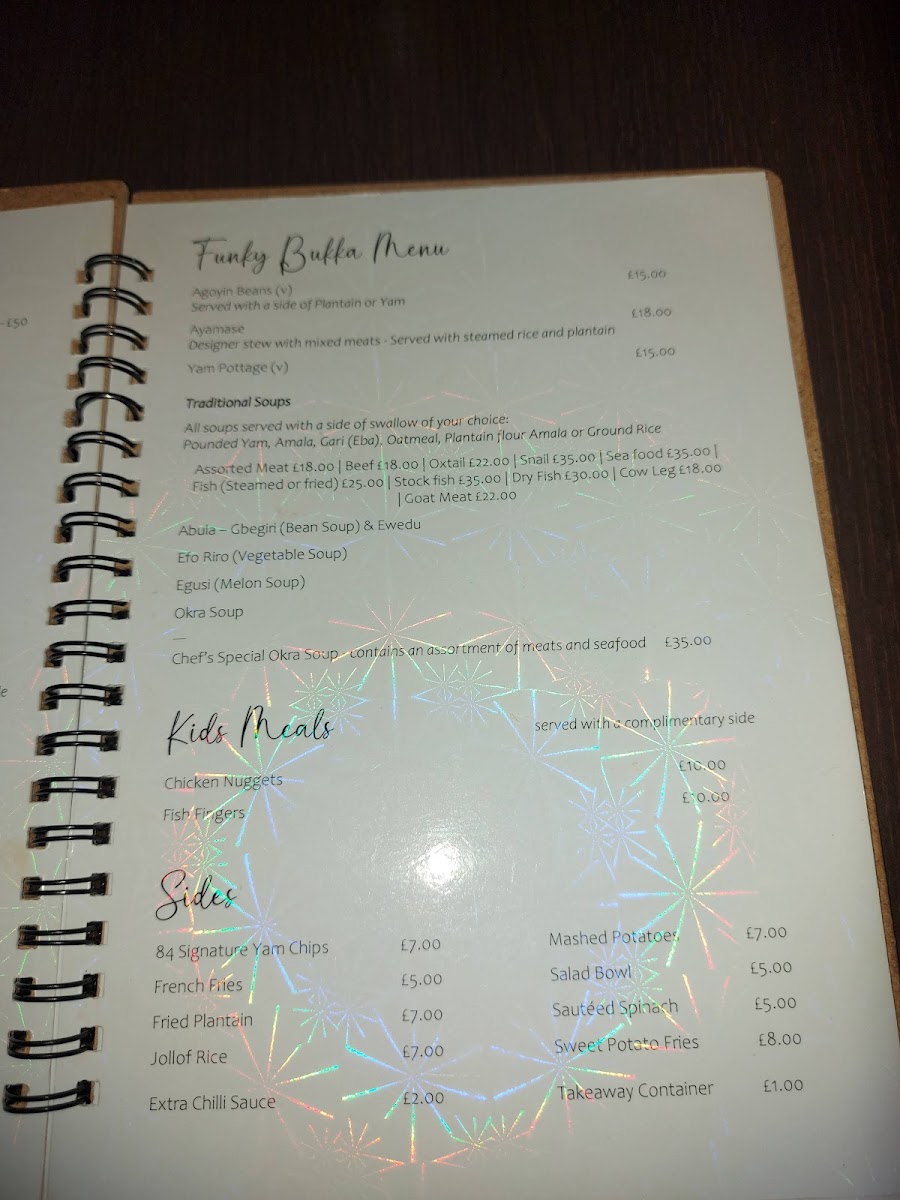 -£50
e
Funky Bukka Menu
Agoyin Beans (v) £15.00
Served with a side of Plantain or Yam
Ayamase £18.00
Designer stew with mixed meats - Served with steamed rice and plantain
Yam Pottage (v) £15.00
Traditional Soups
All soups served with a side of swallow of your choice:
Pounded Yam, Amala, Gari (Eba), Oatmeal, Plantain flour Amala or Ground Rice
Assorted Meat £18.00 | Beef £18.00 | Oxtail £22.00 | Snail £35.00 | Sea food £35.00 |
Fish (Steamed or fried) £25.00 | Stock fish £35.00 | Dry Fish £30.00 | Cow Leg £18.00
| Goat Meat £22.00
Abula – Gbegiri (Bean Soup) & Ewedu
Efo Riro (Vegetable Soup)
Egusi (Melon Soup)
Okra Soup
—
Chef's Special Okra Soup - contains an assortment of meats and seafood £35.00
Kids Meals served with a complimentary side
Chicken Nuggets £10.00
Fish Fingers £10.00
Sides
84 Signature Yam Chips £7.00 Mashed Potatoes £7.00
French Fries £5.00 Salad Bowl £5.00
Fried Plantain £7.00 Sautéed Spinach £5.00
Jollof Rice £7.00 Sweet Potato Fries £8.00
Extra Chilli Sauce £2.00 Takeaway Container £1.00